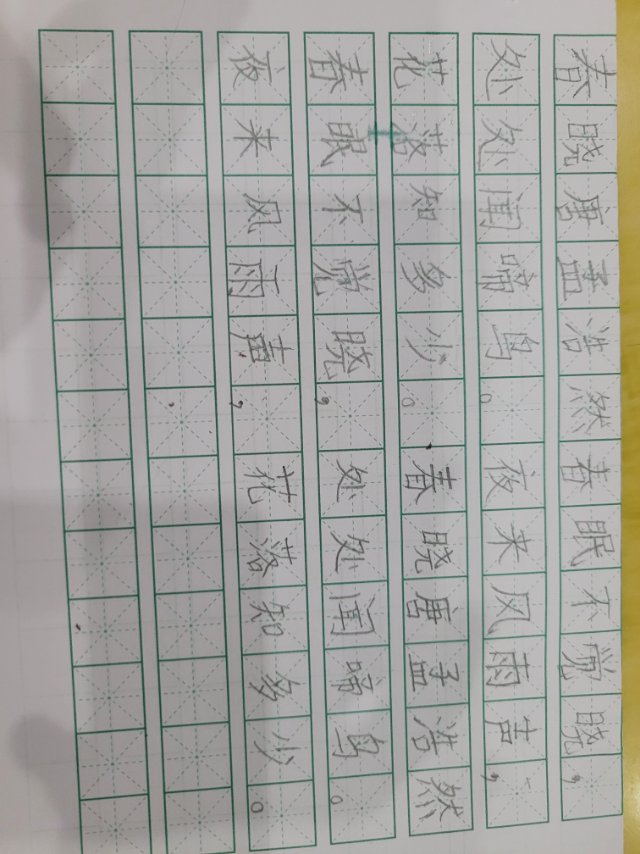 春晓唐孟浩然春眠不觉晓，
处处闻啼鸟。夜来风雨声，
花落知多少。春晓唐孟浩然
春眠不觉晓，处处闻啼鸟。
夜来风雨声，花落知多少。